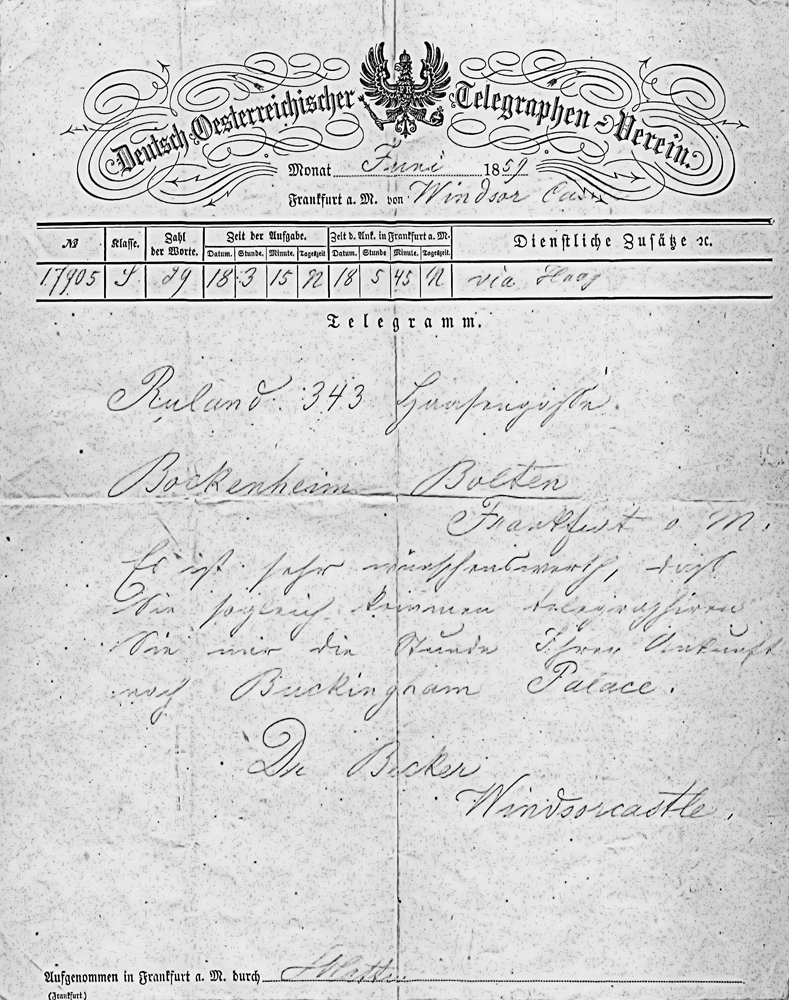 Deutsch-Oesterreichischer Telegraphen-Verein.
Monat Juni 1859
Frankfurt a. M. von Windsor
№ Klasse. Zahl der Worte. Zeit der Aufgabe. Zeit d. Ank. in Frankfurt a. M. Dienstliche Zusätze ꝛc.
Datum. Stunde. Minute. Tageszeit Datum. Stunde Minute. Tageszeit.
17905 S 29 18 3 15 N 18 5 45 N via Haag
Telegramm.
Ruland 343 Haasengasse
Bockenheim Bolten
Frankfurt a M.
Es ist sehr wünschenswerth, daß
Sie sogleich kommen telegraphiren
Sie mir die Stunde Ihrer Ankunft
nach Buckingham Palace.
Dr Becker
Windsorcastle.
Aufgenommen in Frankfurt a. M. durch
(Frankfurt)